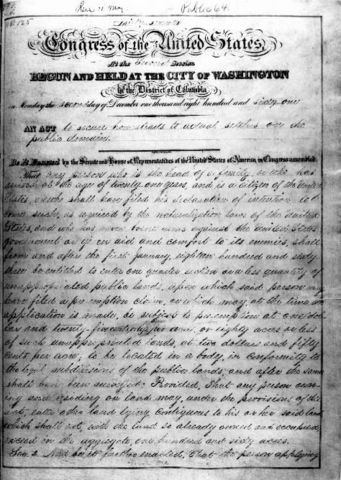 Public 64
Thirty Seventh
Congress of the United States,
At the Second Session
BEGUN AND HELD AT THE CITY OF WASHINGTON
in the District of Columbia
on Monday the second day of December one thousand eight hundred and sixty-one
AN ACT to secure homesteads to actual settlers on the
public domain.
Be it Enacted by the Senate and House of Representatives of the United States of America, in Congress assembled,
That any person who is the head of a family, or who has
arrived at the age of twenty one years, and is a citizen of the United
States, or who shall have filed his declaration of intention to be
come such, as required by the naturalization laws of the United
States, and who has never borne arms against the United States
government or given aid and comfort to its enemies, shall
from and after the first January, eighteen hundred and sixty
three be entitled to enter one quarter section or a less quantity of
unappropriated public lands, upon which said person may
have filed a preemption claim, or which may, at the time the
application is made, be subject to preemption at one dol
lar and twenty-five cents, or less, per acre; or eighty acres or less
of such unappropriated lands, at two dollars and fifty
cents per acre, to be located in a body, in conformity to
the legal subdivisions of the public lands, and after the same
shall have been surveyed: Provided, That any person own
ing and residing on land may, under the provisions of this
act, enter other land lying contiguous to his or her said land,
which shall not, with the land so already owned and occupied,
exceed in the aggregate one hundred and sixty acres.
Sec. 2. And be it further enacted, That the person applying